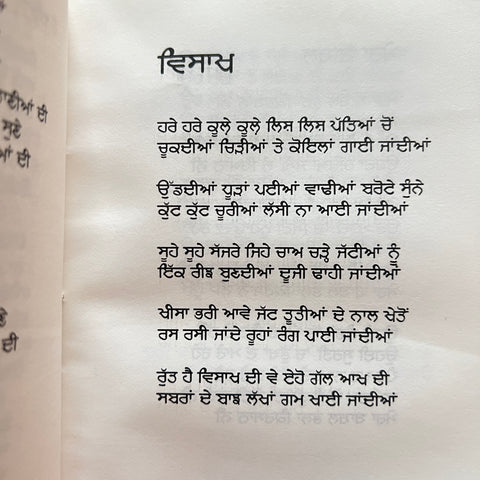 ਾਣੀਆਂ ਦੀ
ਸੁਣੇ
ਆਂ ਦੀ
ਦੀ
ਵਿਸਾਖ
ਹਰੇ ਹਰੇ ਕੂਲੇ ਕੂਲੇ ਲਿਸ਼ ਲਿਸ਼ ਪੱਤਿਆਂ ਚੋਂ
ਚੂਕਦੀਆਂ ਚਿੜੀਆਂ ਤੇ ਕੋਇਲਾਂ ਗਾਈ ਜਾਂਦੀਆਂ
ਉੱਡਦੀਆਂ ਧੂੜਾਂ ਪਈਆਂ ਵਾਢੀਆਂ ਬਰੋਟੇ ਸੁੰਨੇ
ਕੁੱਟ ਕੁੱਟ ਚੂਰੀਆਂ ਲੱਸੀ ਨਾ ਆਈ ਜਾਂਦੀਆਂ
ਸੂਹੇ ਸੂਹੇ ਸੱਜਰੇ ਜਿਹੇ ਚਾਅ ਚੜ੍ਹੇ ਜੱਟੀਆਂ ਨੂੰ
ਇੱਕ ਰੀਝ ਬੁਣਦੀਆਂ ਦੂਜੀ ਢਾਹੀ ਜਾਂਦੀਆਂ
ਖੀਸਾ ਭਰੀ ਆਵੇ ਜੱਟ ਤੂਤੀਆਂ ਦੇ ਨਾਲ ਖੇਤੋਂ
ਰਸ ਰਸੀ ਜਾਂਦੇ ਰੂਹਾਂ ਰੰਗ ਪਾਈ ਜਾਂਦੀਆਂ
ਰੁੱਤ ਹੈ ਵਿਸਾਖ ਦੀ ਵੇ ਏਹੋ ਗੱਲ ਆਖ ਦੀ
ਸਬਰਾਂ ਦੇ ਬਾਝ ਲੱਖਾਂ ਗਮ ਖਾਈ ਜਾਂਦੀਆਂ